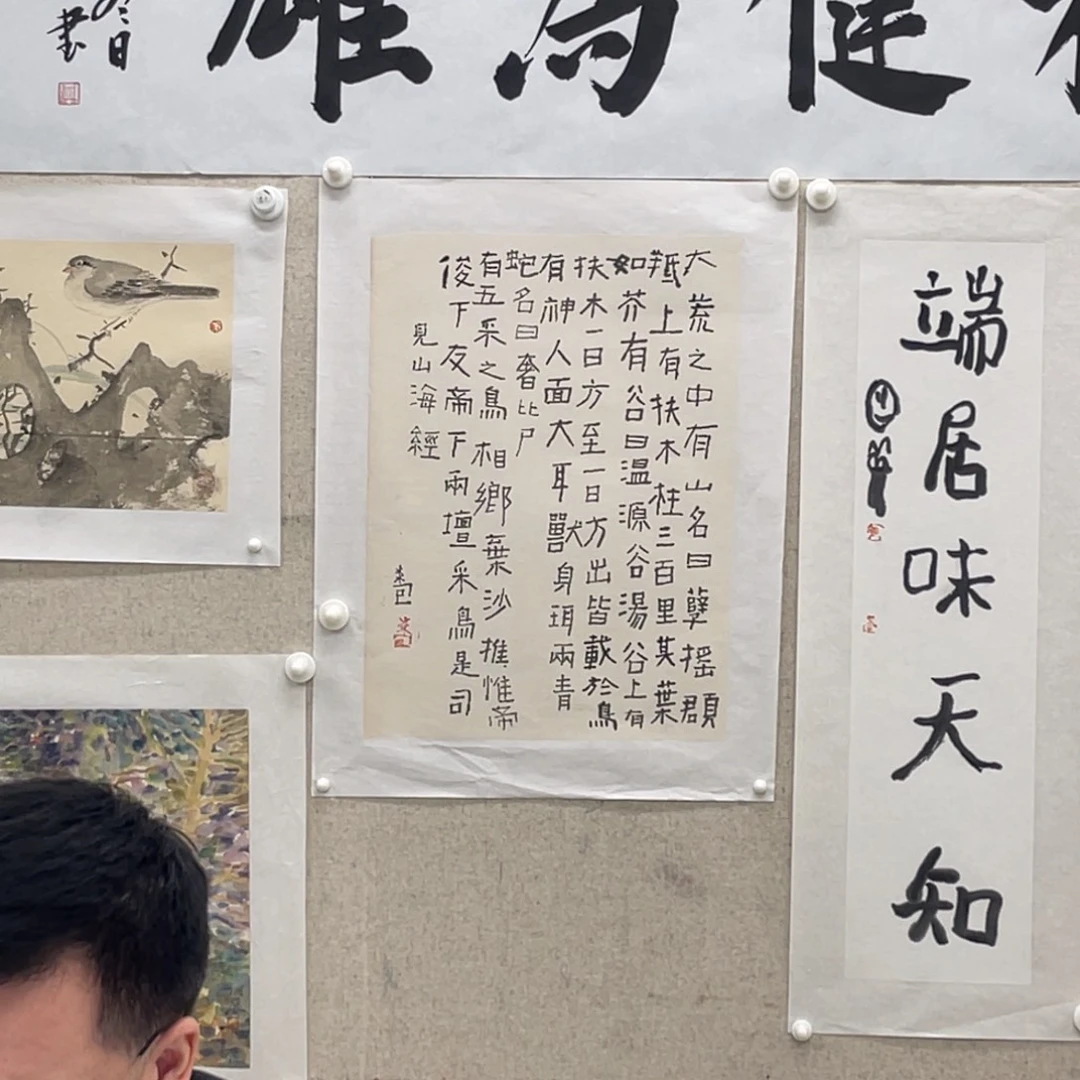 健為雄
冬日
書
大荒之中有山名曰孽摇頵
羝上有扶木柱三百里其葉
如芥有谷曰温源谷湯谷上有
扶木一日方至一日方出皆載於鳥
有神人面大耳獸身珥兩青
蛇名曰奢比尸
有五采之鳥相鄉棄沙推惟帝
俊下友帝下兩壇采鳥是司
見山海經
端居味天知